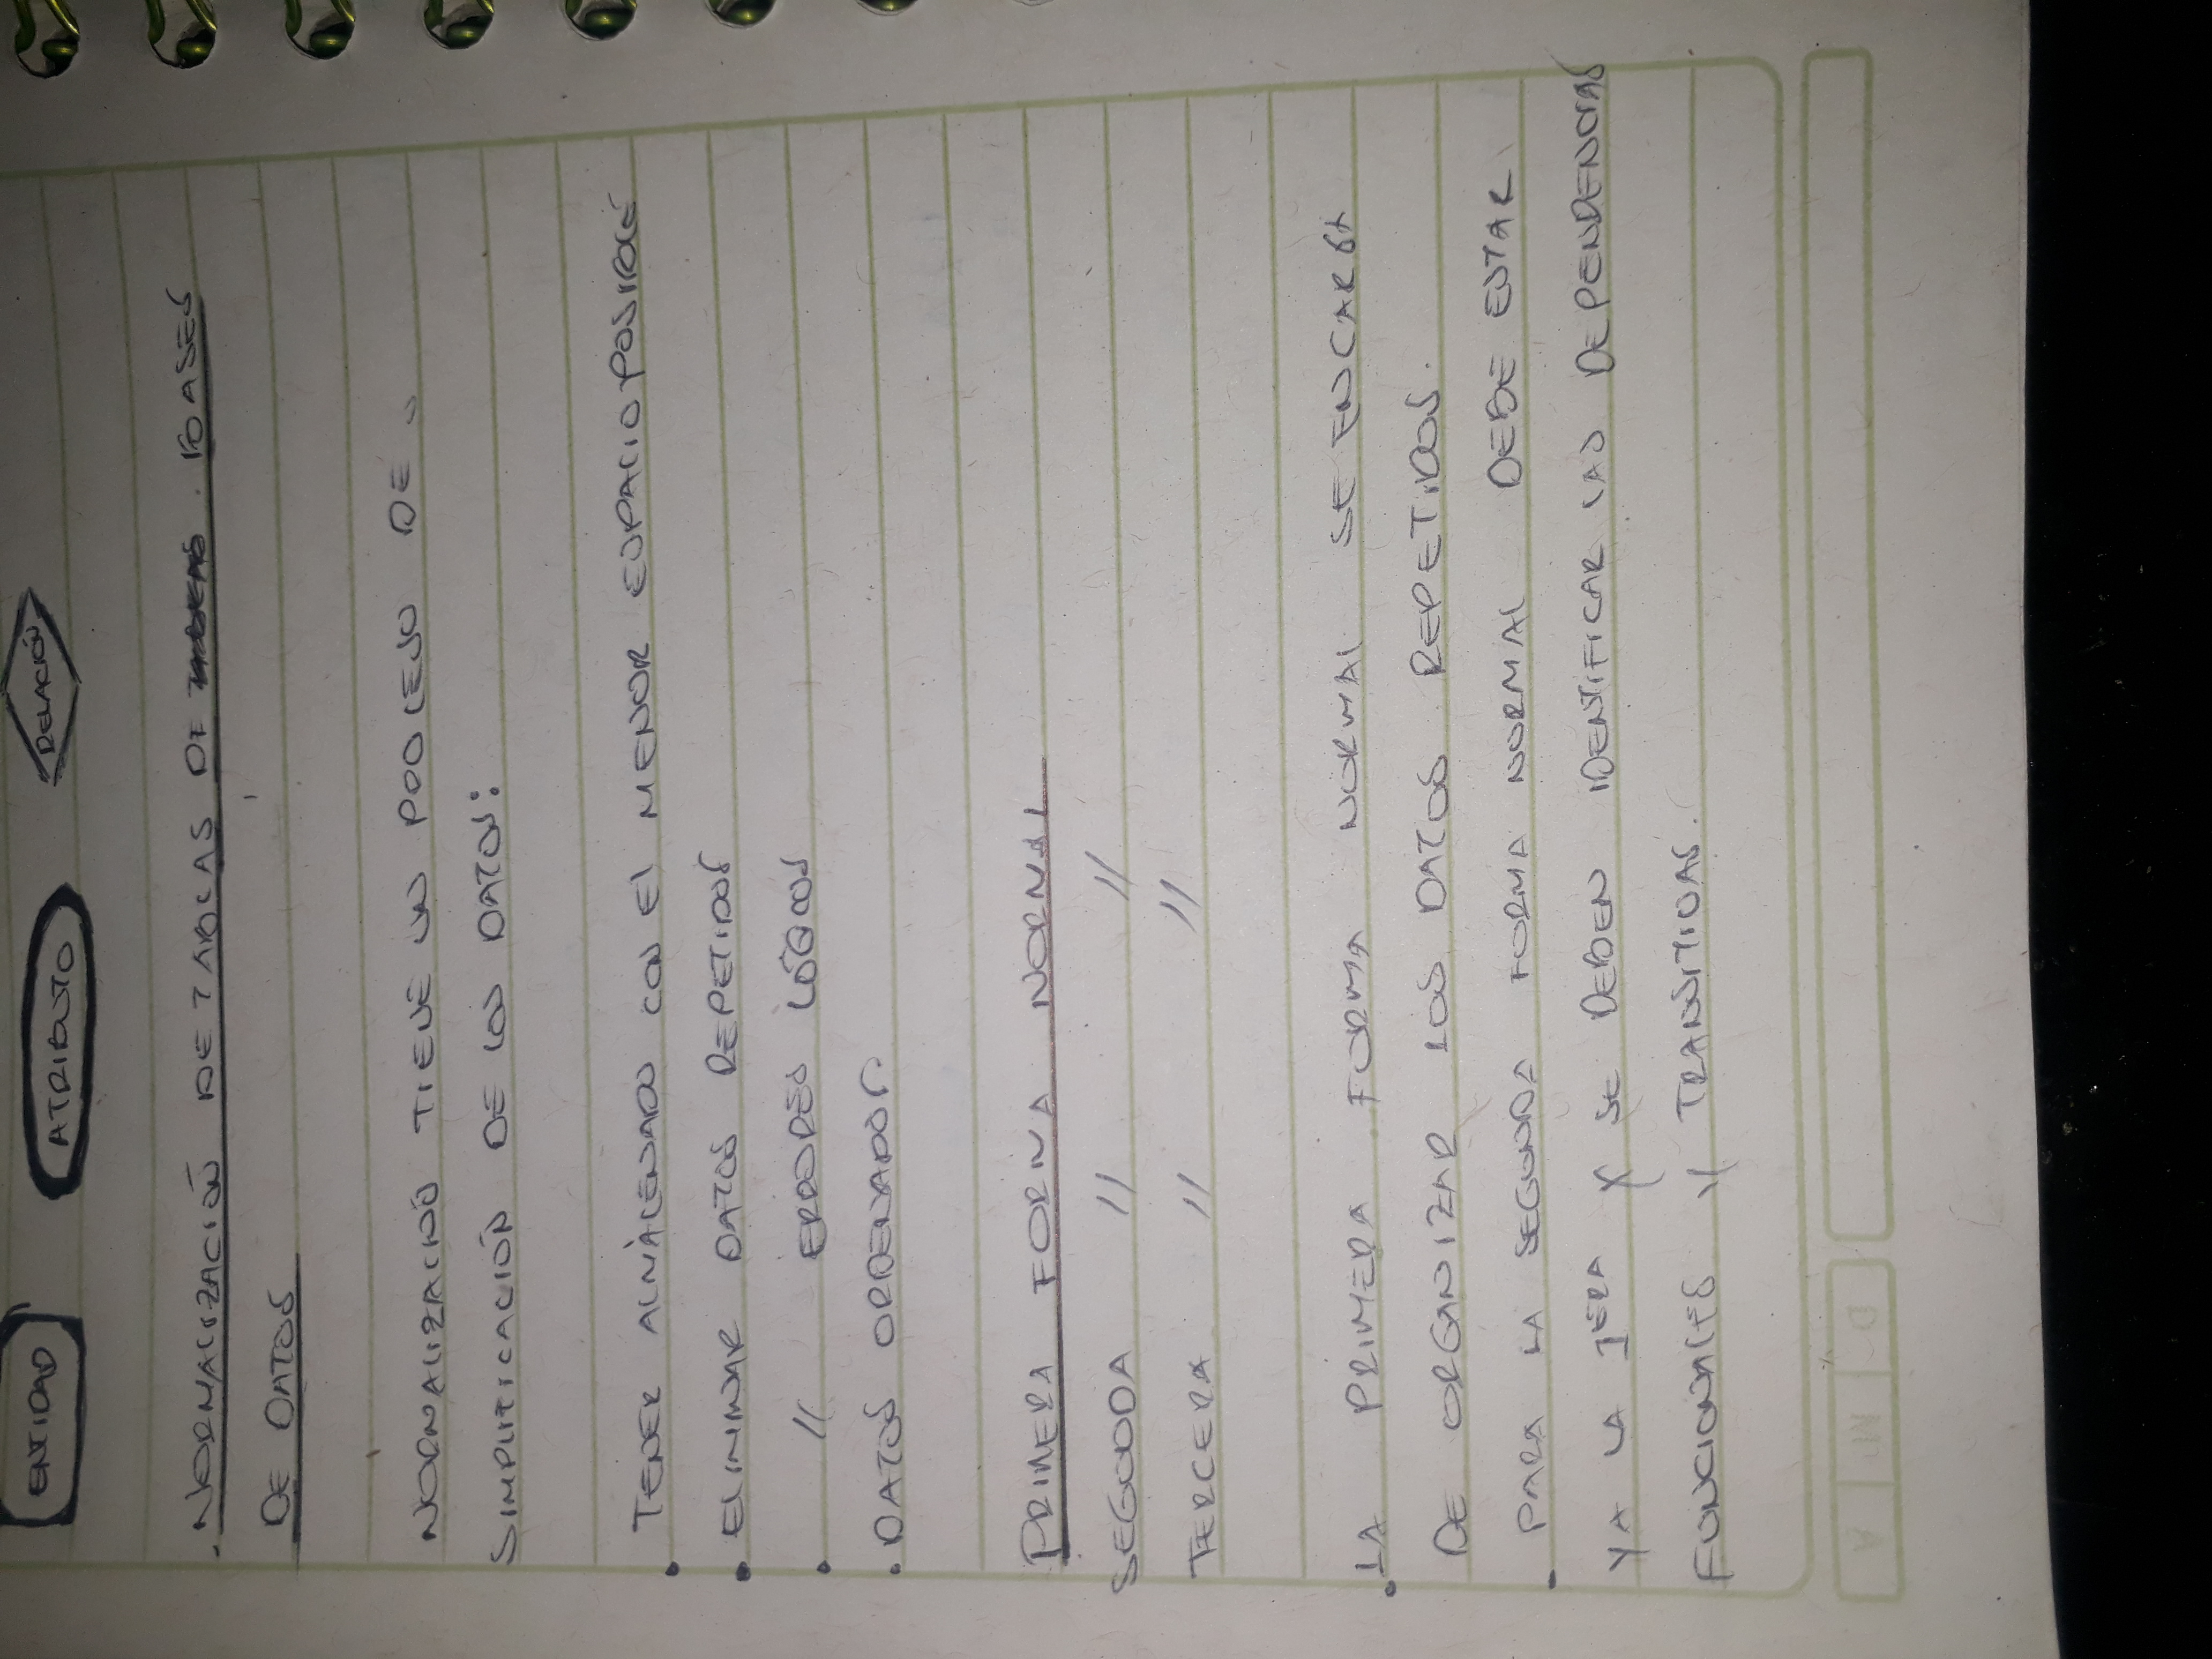 ENTIDAD ATRIBUTO RELACIÓN
. NORMALIZACIÓN DE TABLAS DE TABLAS . BASES
DE DATOS
NORMALIZACIÓN TIENE UN PROCESO DE
SIMPLIFICACIÓN DE LOS DATOS:
. TENER ALMACENADO CON El MENOR ESPACIO POSIBLE
. ELIMINAR DATOS REPETIDOS
. // ERRORES LÓGICOS
. DATOS ORDENADOS
PRIMERA FORMA NORMAL
SEGUNDA // //
TERCERA // //
. LA PRIMERA FORMA NORMAL SE ENCARGA
DE ORGANIZAR LOS DATOS REPETIDOS.
- PARA LA SEGUNDA FORMA NORMAL DEBE ESTAR
YA LA 1ERA Y SE DEBEN IDENTIFICAR LAS DEPENDENCIAS
FUNCIONALES Y TRANSITIVAS.
D M A